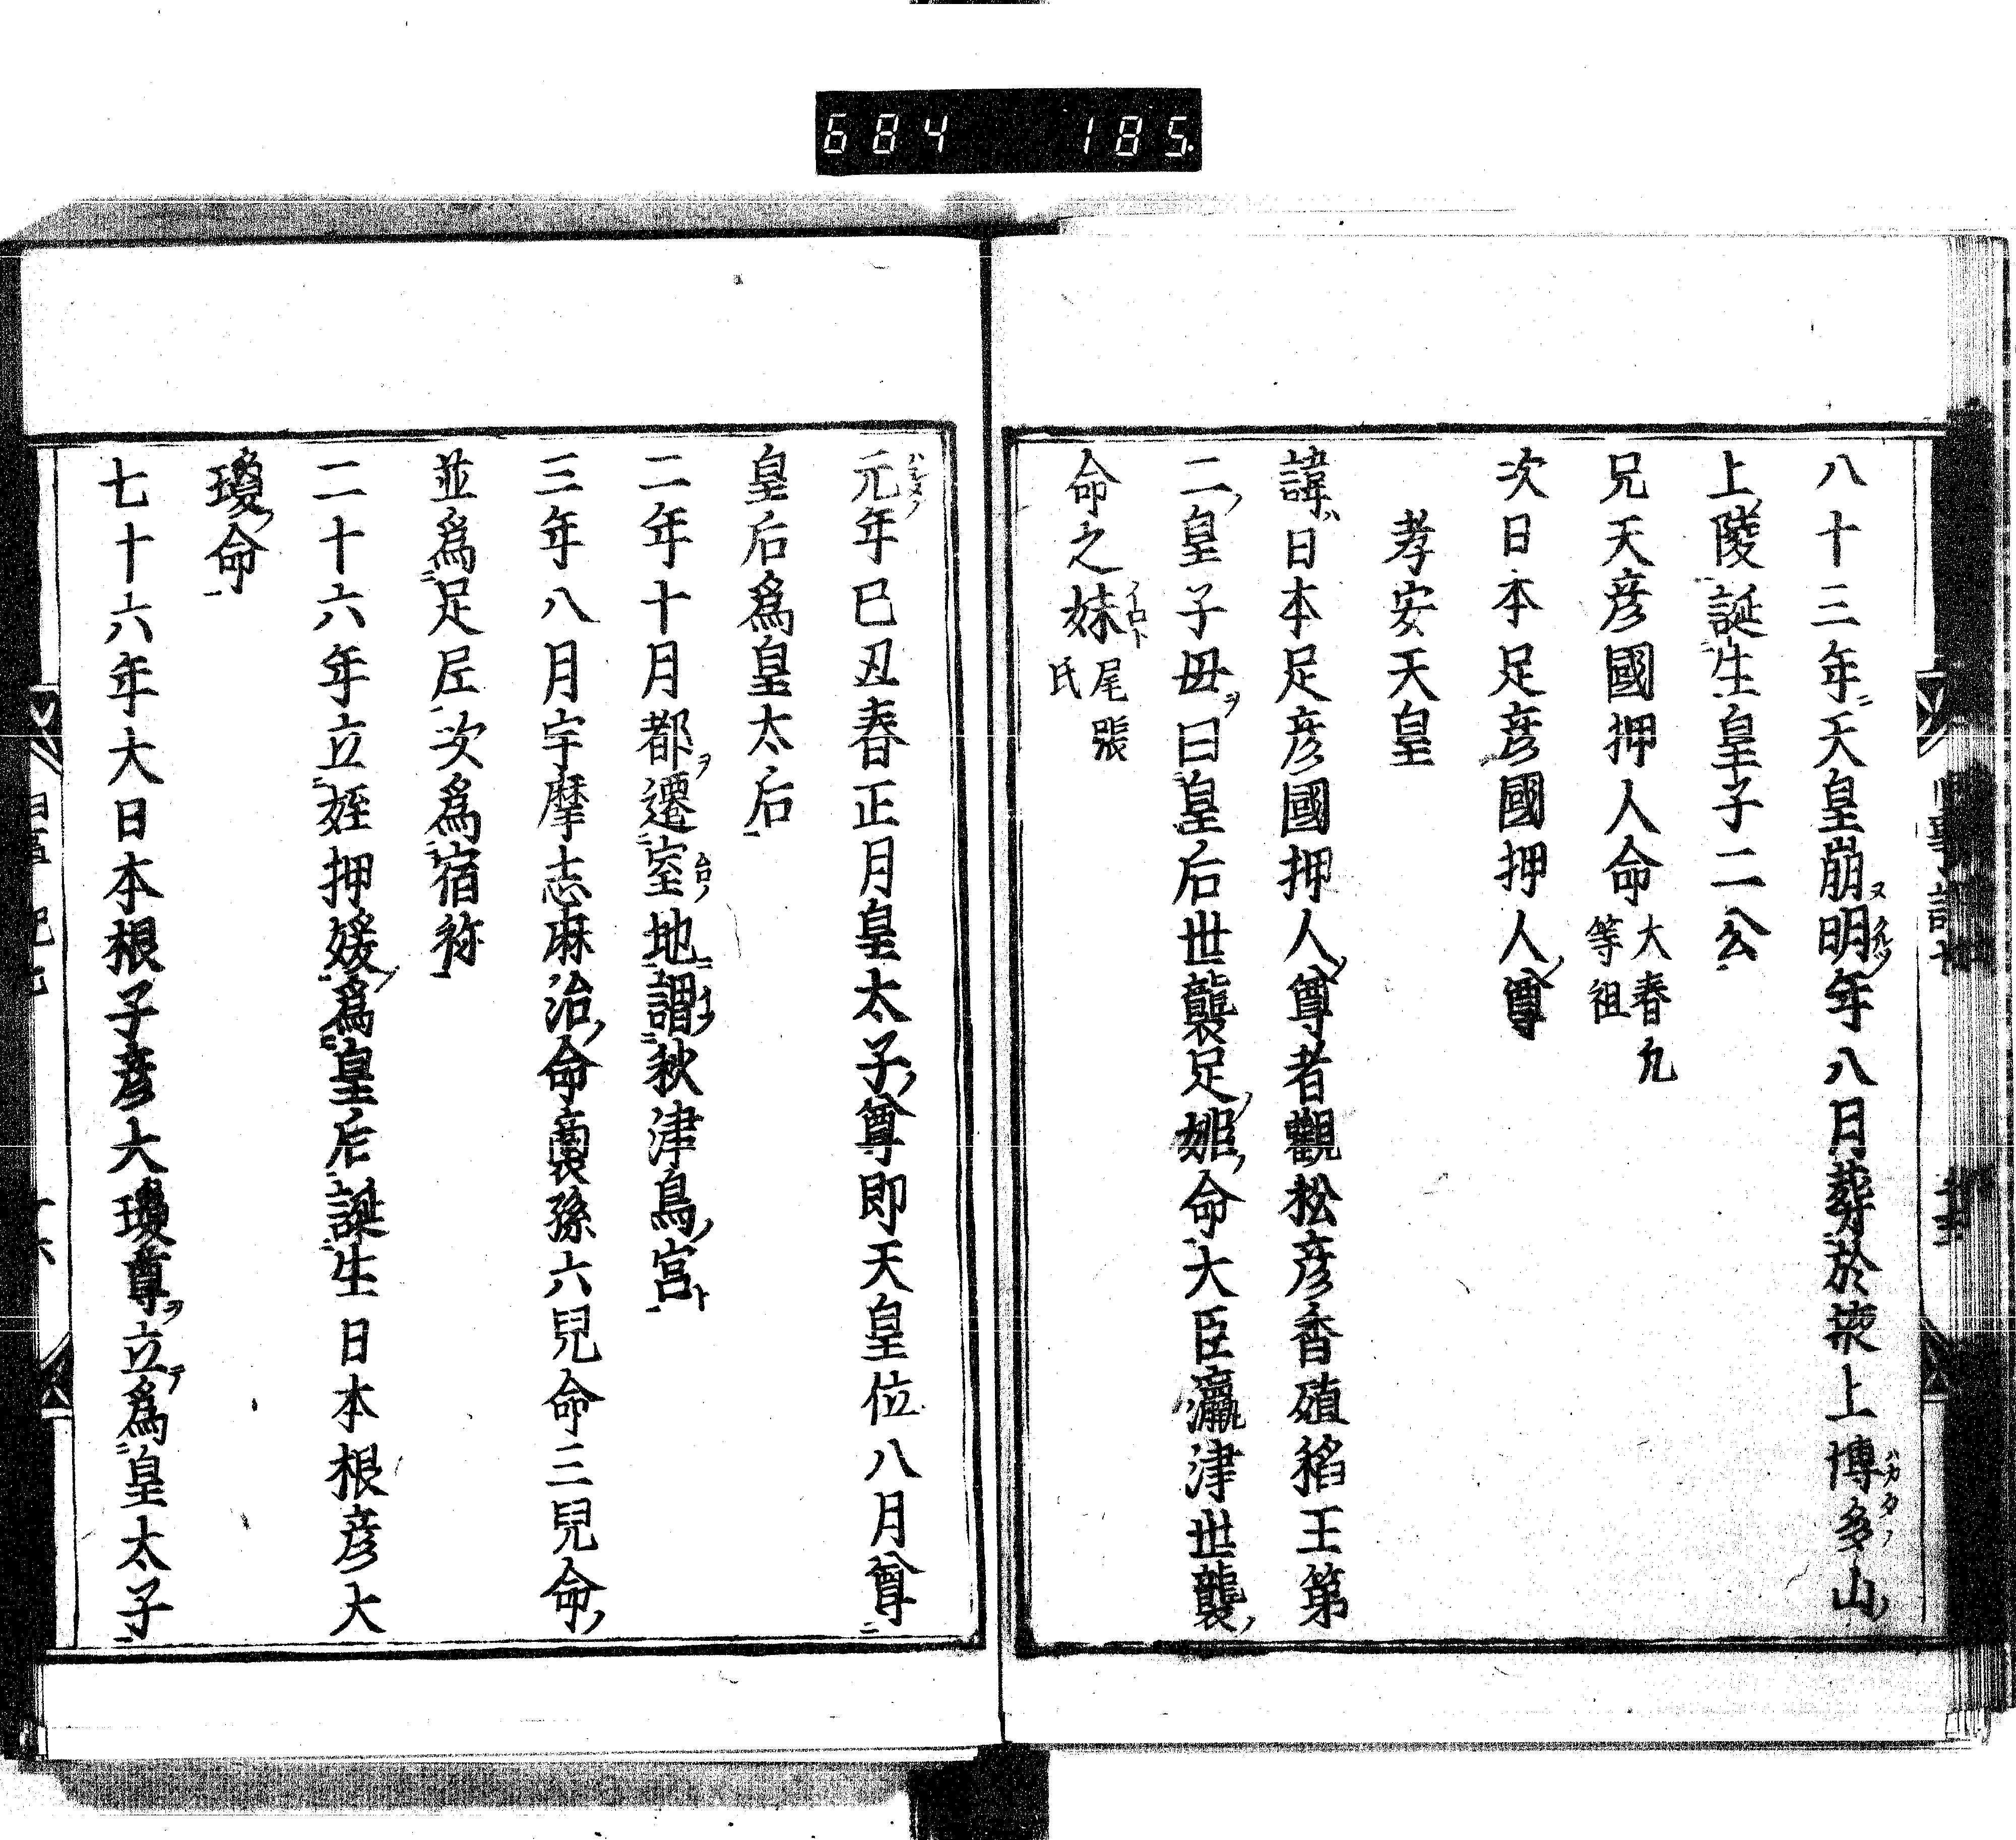 684 185
八十三年天皇崩明年八月葬於掖上博多山
上陵誕生皇子二公
兄天彦國押人命大春九
等祖
次日本足彦國押人尊
孝安天皇
諱日本足彦國押人尊者觀松彦香殖稻王第
二皇子毋曰皇后世襲足姫命大臣瀛津世襲
命之妹尾張
氏
元年巳丑春正月皇太子尊即天皇位八月尊
皇后爲皇太后
二年十月都遷室地謂秋津島宮
三年八月宇摩志麻治命裔孫六兒命三兒命
並爲足尼次爲宿祢
二十六年立姪押媛爲皇后誕生日本根彦大
瓊命
七十六年大日本根子彦大瓊尊立爲皇太子